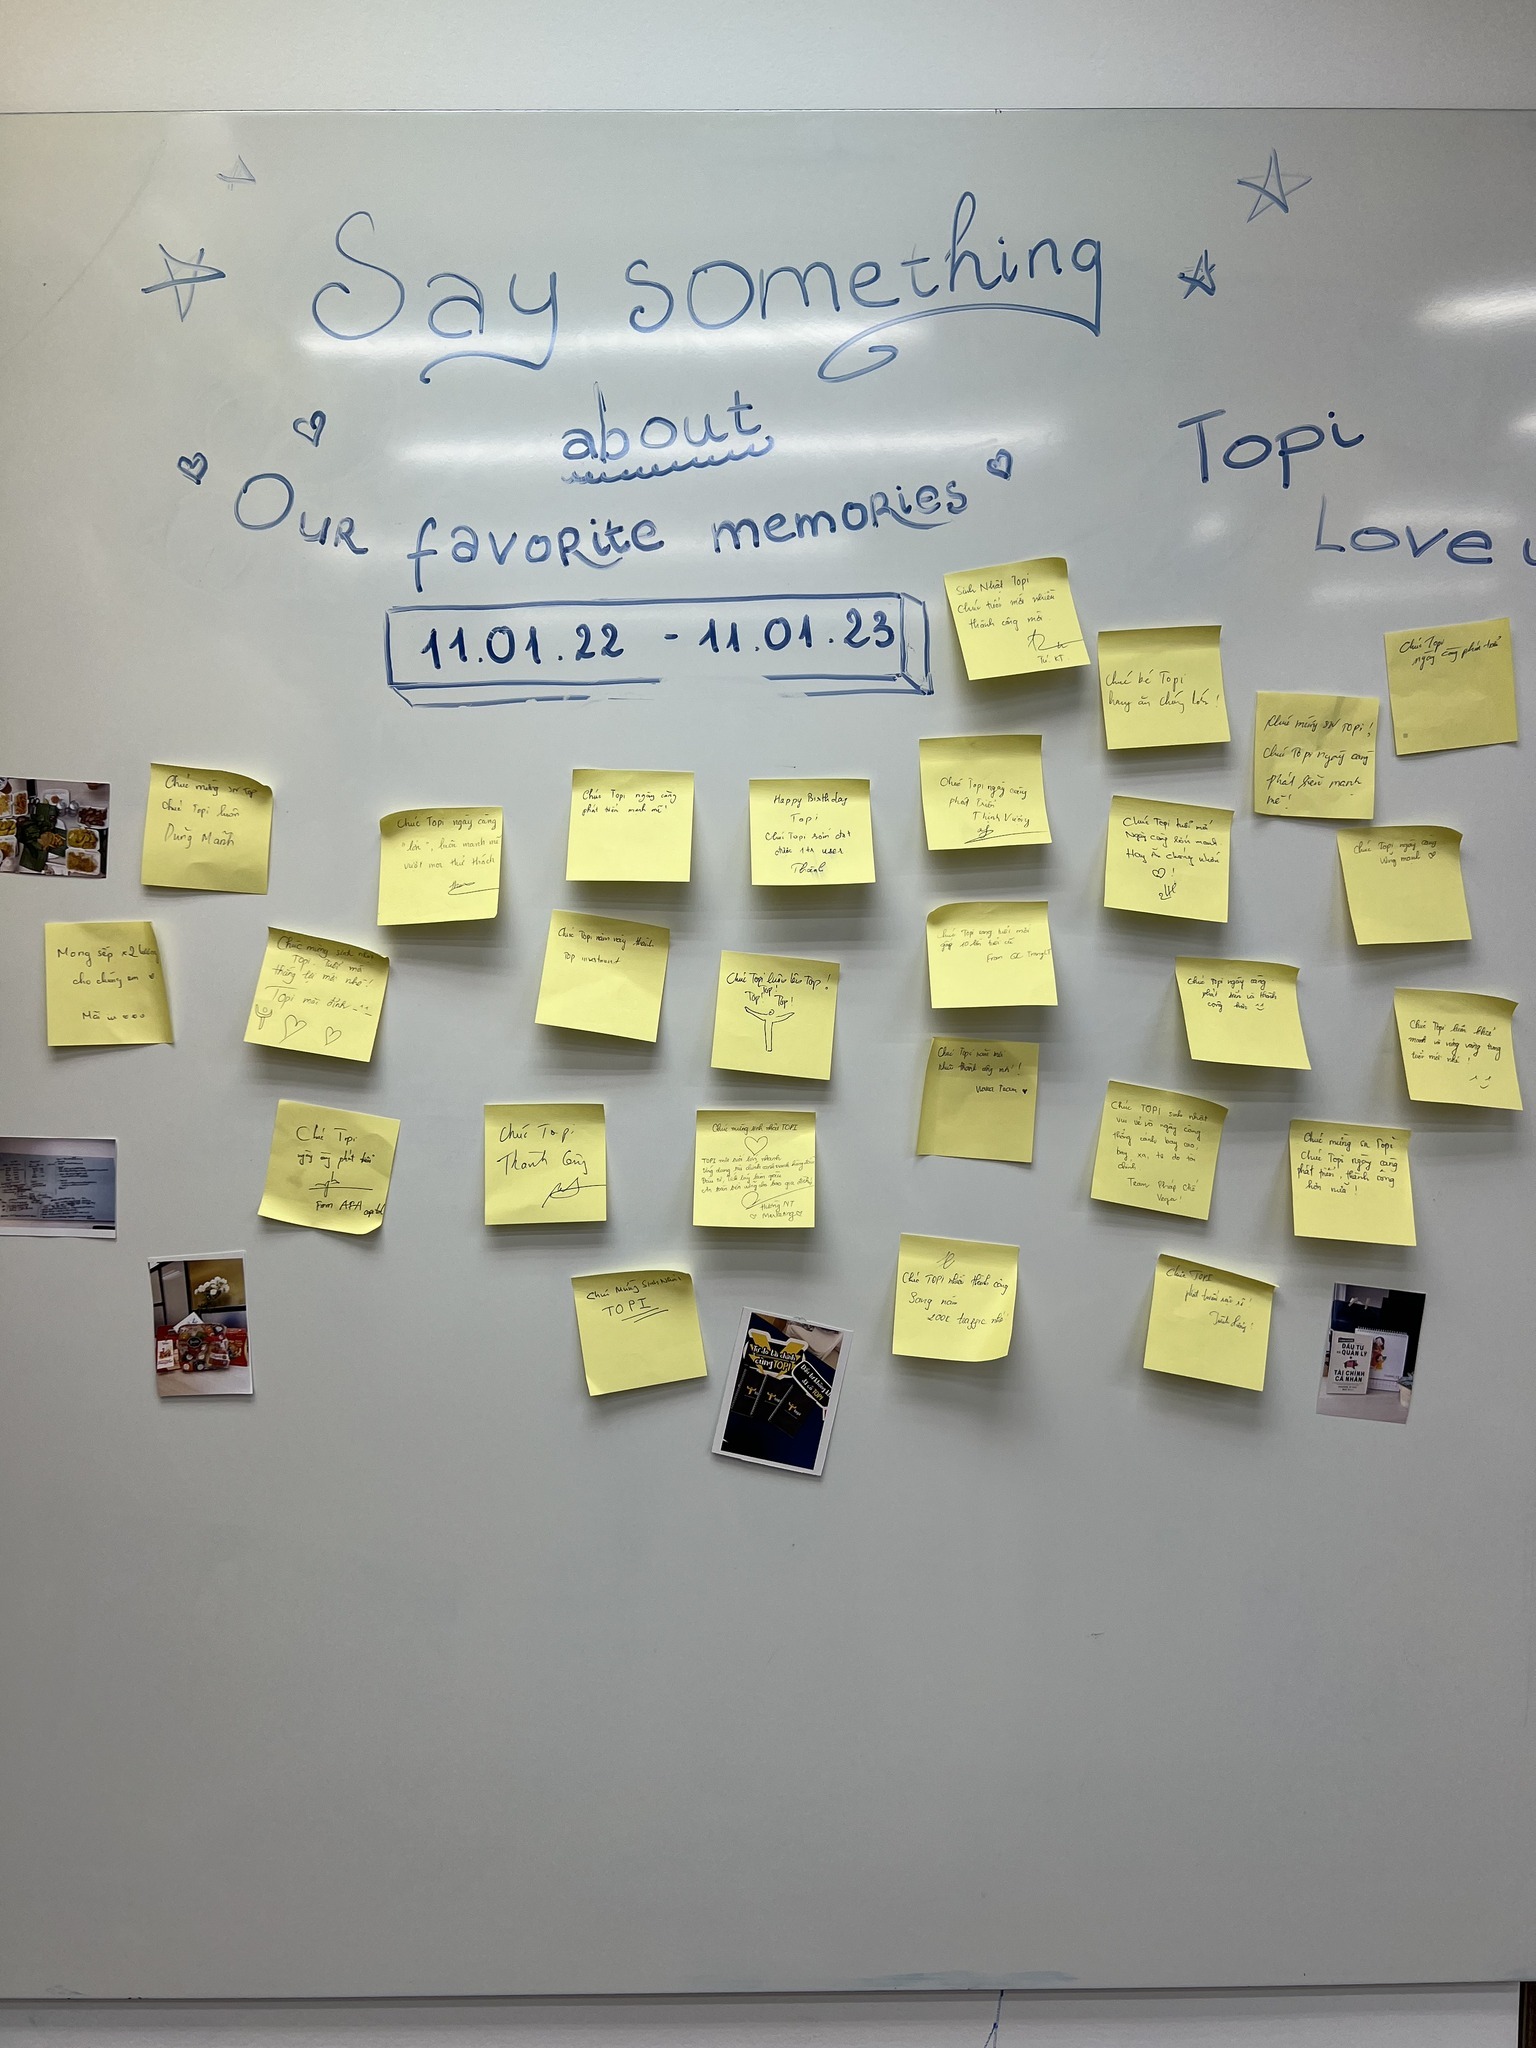 Say something
about
"Our favorite memories"
Topi
Love
11.01.22 - 11.01.23
Sinh Nhật Topi
Chúc tuổi mới nhiều
thành công mới
Chúc bé Topi
hay ăn chóng lớn!
Chúc Topi
ngày càng phát triển
Chúc mừng SN TOPI!
Chúc Topi ngày càng
phát triển mạnh
mẽ!
Chúc mừng SN Top
chúc Topi luôn
Dũng Mãnh
Chúc Topi ngày càng
"lớn", luôn mạnh mẽ
vượt mọi thử thách
Chúc Topi ngày càng
phát triển mạnh mẽ!
Happy Birthday
Topi
Chúc Topi sớm đạt
được 1tr user
Chúc Topi ngày càng
phát Triển
Thịnh Vượng
Chúc Topi tuổi mới
Ngày càng lớn mạnh
Hay Ăn chóng lớn
Chúc Topi ngày càng
vững mạnh
Mong sếp x2 lương
cho chúng em
Chúc mừng sinh nhật
Topi. Tuổi mới
thắng lợi mới nhé!
Topi mãi đỉnh
Chúc Topi năm nay thành
Top investment
Chúc Topi luôn lên Top!
Top! Top! Top!
Chúc Topi sang tuổi mới
gấp 10 lần tuổi cũ
Chúc Topi ngày càng
phát triển và thành
công hơn
Chúc Topi luôn khoẻ
mạnh và vững vàng trong
tuổi mới nhé!
Chúc Topi
Team
Chúc Topi
ngày càng phát triển
From AFA Capital
Chúc Topi
Thành Công
Chúc mừng sinh nhật TOPI
TOPI
Chúc TOPI sinh nhật
vui vẻ và ngày càng
thẳng cánh bay cao,
bay xa, tự do tài
chính
Team Pháp Chế
Chúc mừng SN Topi
Chúc Topi ngày càng
phát triển, thành công
hơn nữa!
Chúc Mừng Sinh Nhật
TOPI
Chúc TOPI thành công
Sang năm
200k traffic nhé
Chúc TOPI
Tự do tài chính
cùng TOPI
ĐẦU TƯ
QUẢN LÝ
TÀI CHÍNH
CÁ NHÂN